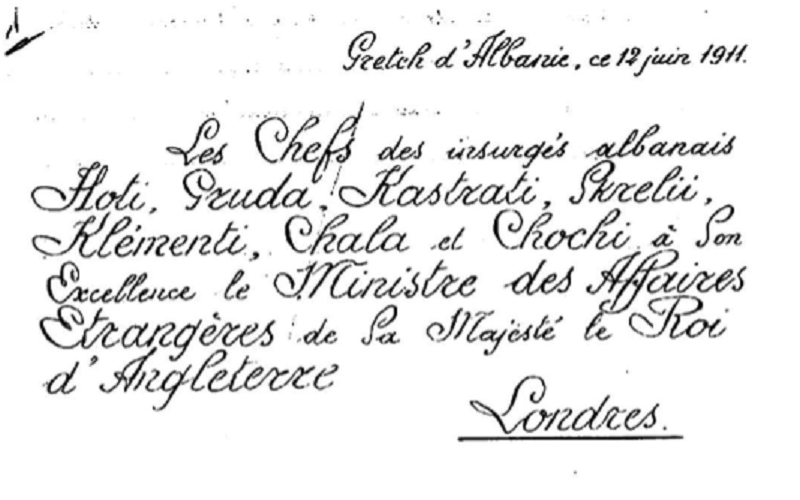 Gretch d'Albanie, ce 12 juin 1911.
Les Chefs des insurgés albanais
Hoti, Gruda, Kastrati, Skrelii,
Klémenti, Chala et Chochi à Son
Excellence le Ministre des Affaires
Etrangères de Sa Majesté le Roi
d'Angleterre
Londres.